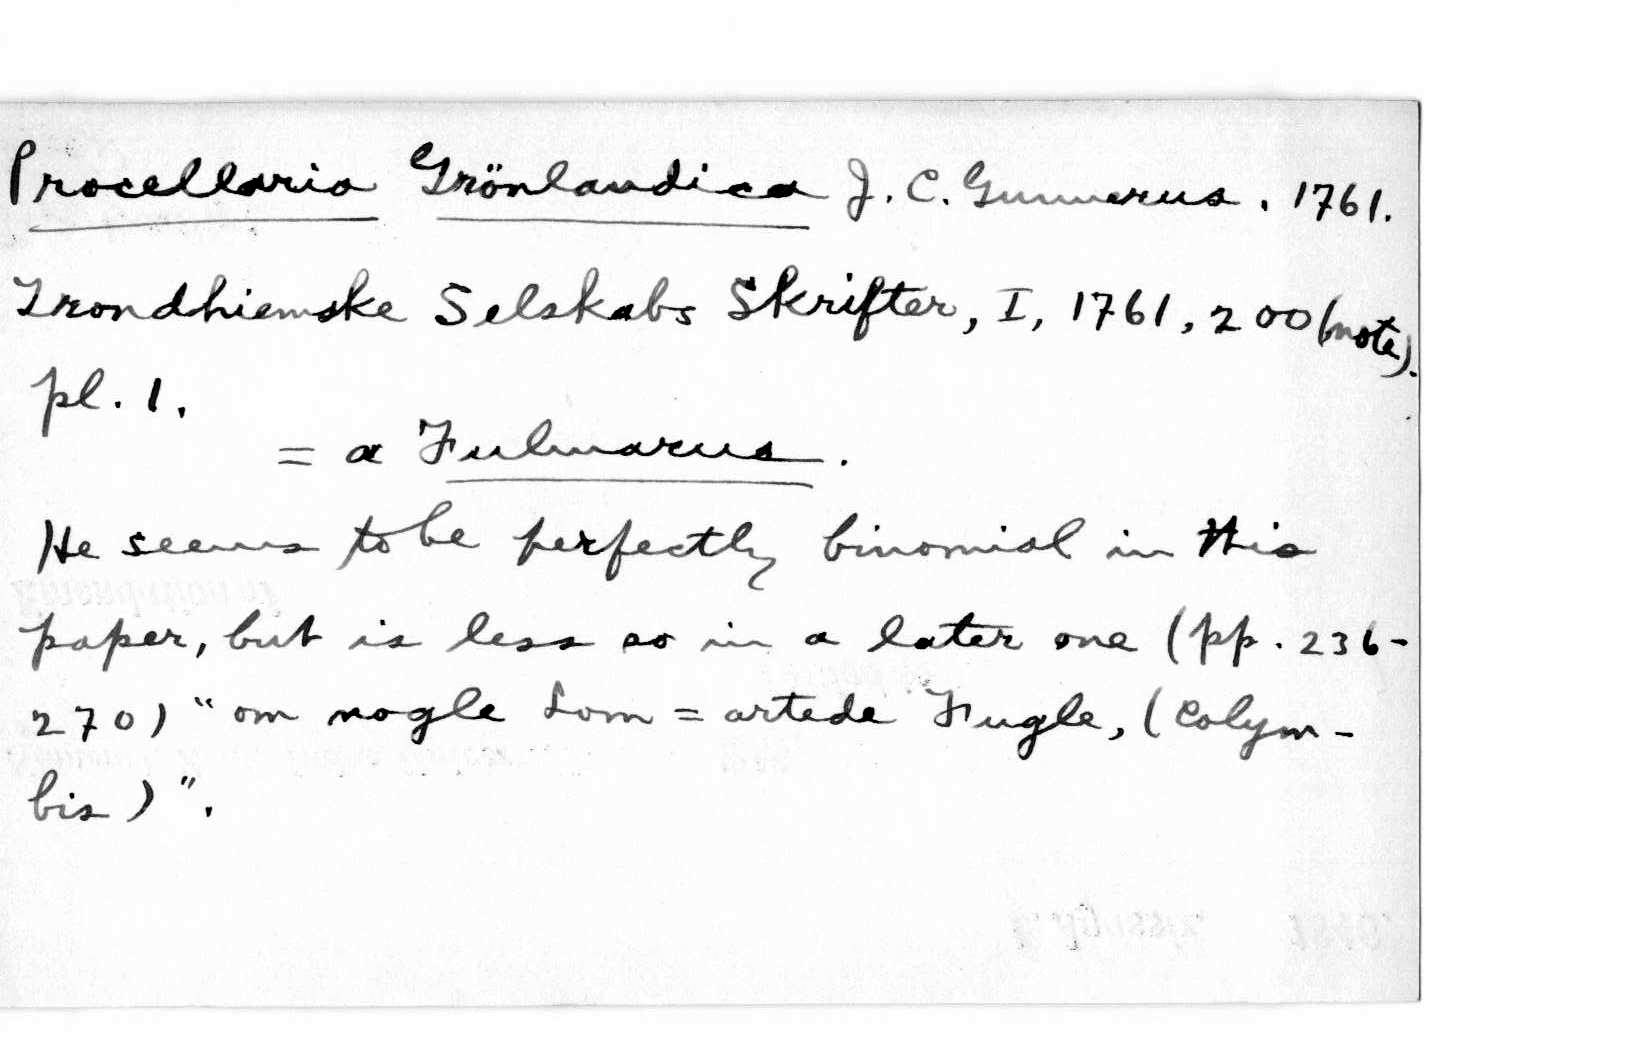 Procellaria Grönlandica J. C. Gunnerus. 1761.
Trondhiemske Selskabs Skrifter, I, 1761, 200 (note).
pl. 1.
= a Fulmarus.
He seems to be perfectly binomial in this
paper, but is less so in a later one (pp. 236-
270) "om nogle Lom = artede Fugle, (Colym-
bis)".